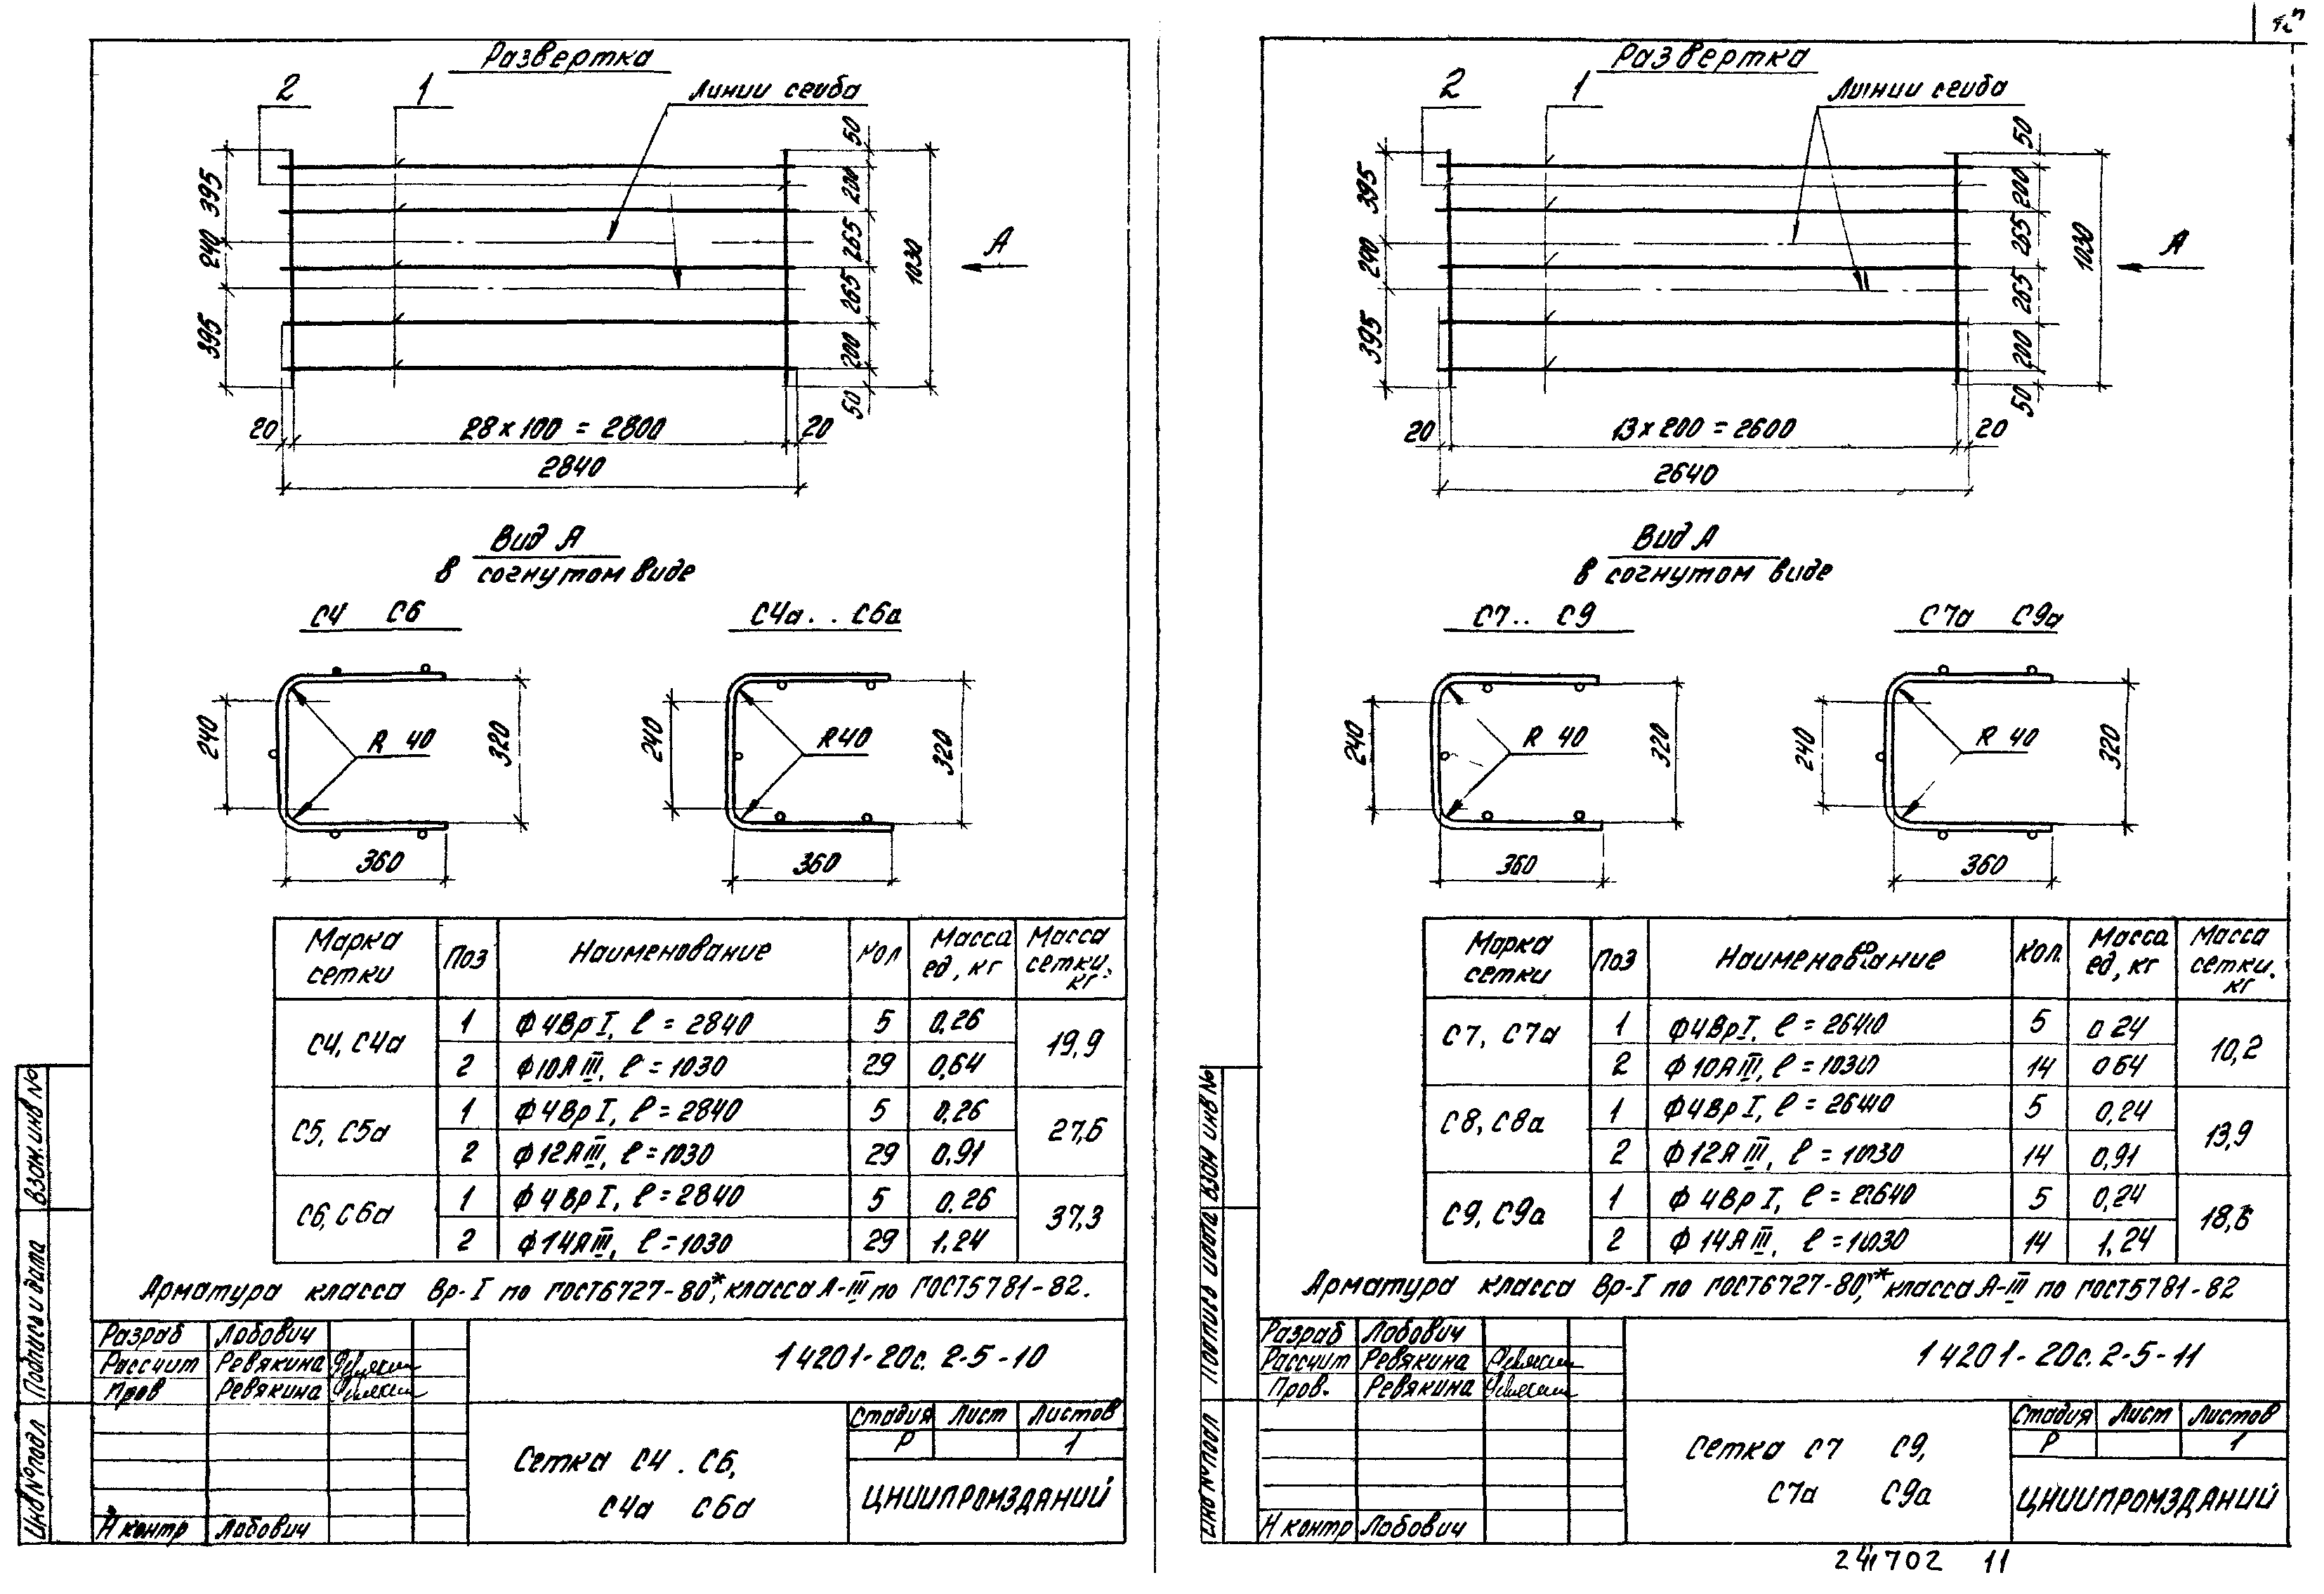 Развертка
2
1
Линии сгиба
395
240
395
50
200
265
265
200
50
1030
А
20
28 × 100 = 2800
20
2840
Вид А
в согнутом виде
С4 С6
С4а . . С6а
240
R 40
320
360
240
R40
320
360
Марка сетки | Поз | Наименование | Кол | Масса ед, кг | Масса сетки, кг.
С4, С4а | 1 | Ф 4Вр I, ℓ = 2840 | 5 | 0,26 | 19,9
2 | Ф10А III, ℓ = 1030 | 29 | 0,64
С5, С5а | 1 | Ф 4Вр I, ℓ = 2840 | 5 | 0,26 | 27,6
2 | Ф12А III, ℓ = 1030 | 29 | 0,91
С6, С6а | 1 | Ф 4Вр I, ℓ = 2840 | 5 | 0,26 | 37,3
2 | Ф14А III, ℓ = 1030 | 29 | 1,24
Арматура класса Вр-I по ГОСТ6727-80*, класса А-III по ГОСТ5781-82.
Разраб Лобович
Рассчит Ревякина
Пров Ревякина
Н контр Лобович
1 420 1-20с. 2-5-10
Сетка С4 . С6,
С4а С6а
Стадия Лист Листов
Р 1
ЦНИИПРОМЗДАНИЙ
Инв № подл
Подпись и дата
Взам. инв №
Развертка
2
1
Линии сгиба
395
240
395
50
200
265
265
200
50
1030
А
20
13 × 200 = 2600
20
2640
Вид А
в согнутом виде
С7 . . С9
С7а С9а
240
R 40
320
360
240
R 40
320
360
Марка сетки | Поз | Наименование | Кол. | Масса ед, кг | Масса сетки. кг
С7, С7а | 1 | Ф 4Вр I, ℓ = 2640 | 5 | 0 24 | 10,2
2 | Ф 10А III, ℓ = 1030 | 14 | 0 64
С8, С8а | 1 | Ф 4Вр I, ℓ = 2640 | 5 | 0,24 | 13,9
2 | Ф 12А III, ℓ = 1030 | 14 | 0,91
С9, С9а | 1 | Ф 4Вр I, ℓ = 2640 | 5 | 0,24 | 18,6
2 | Ф 14А III, ℓ = 1030 | 14 | 1,24
Арматура класса Вр-I по ГОСТ6727-80,* класса А-III по ГОСТ5781-82
Разраб Лобович
Рассчит Ревякина
Пров. Ревякина
Н контр Лобович
1 420 1-20с. 2-5-11
Сетка С7 С9,
С7а С9а
Стадия Лист Листов
Р 1
ЦНИИПРОМЗДАНИЙ
Инв № подл
Подпись и дата
Взам инв №
24702 11